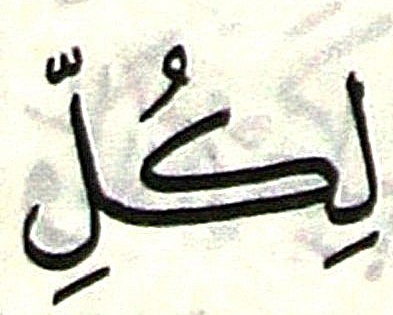 لِكُلِّ